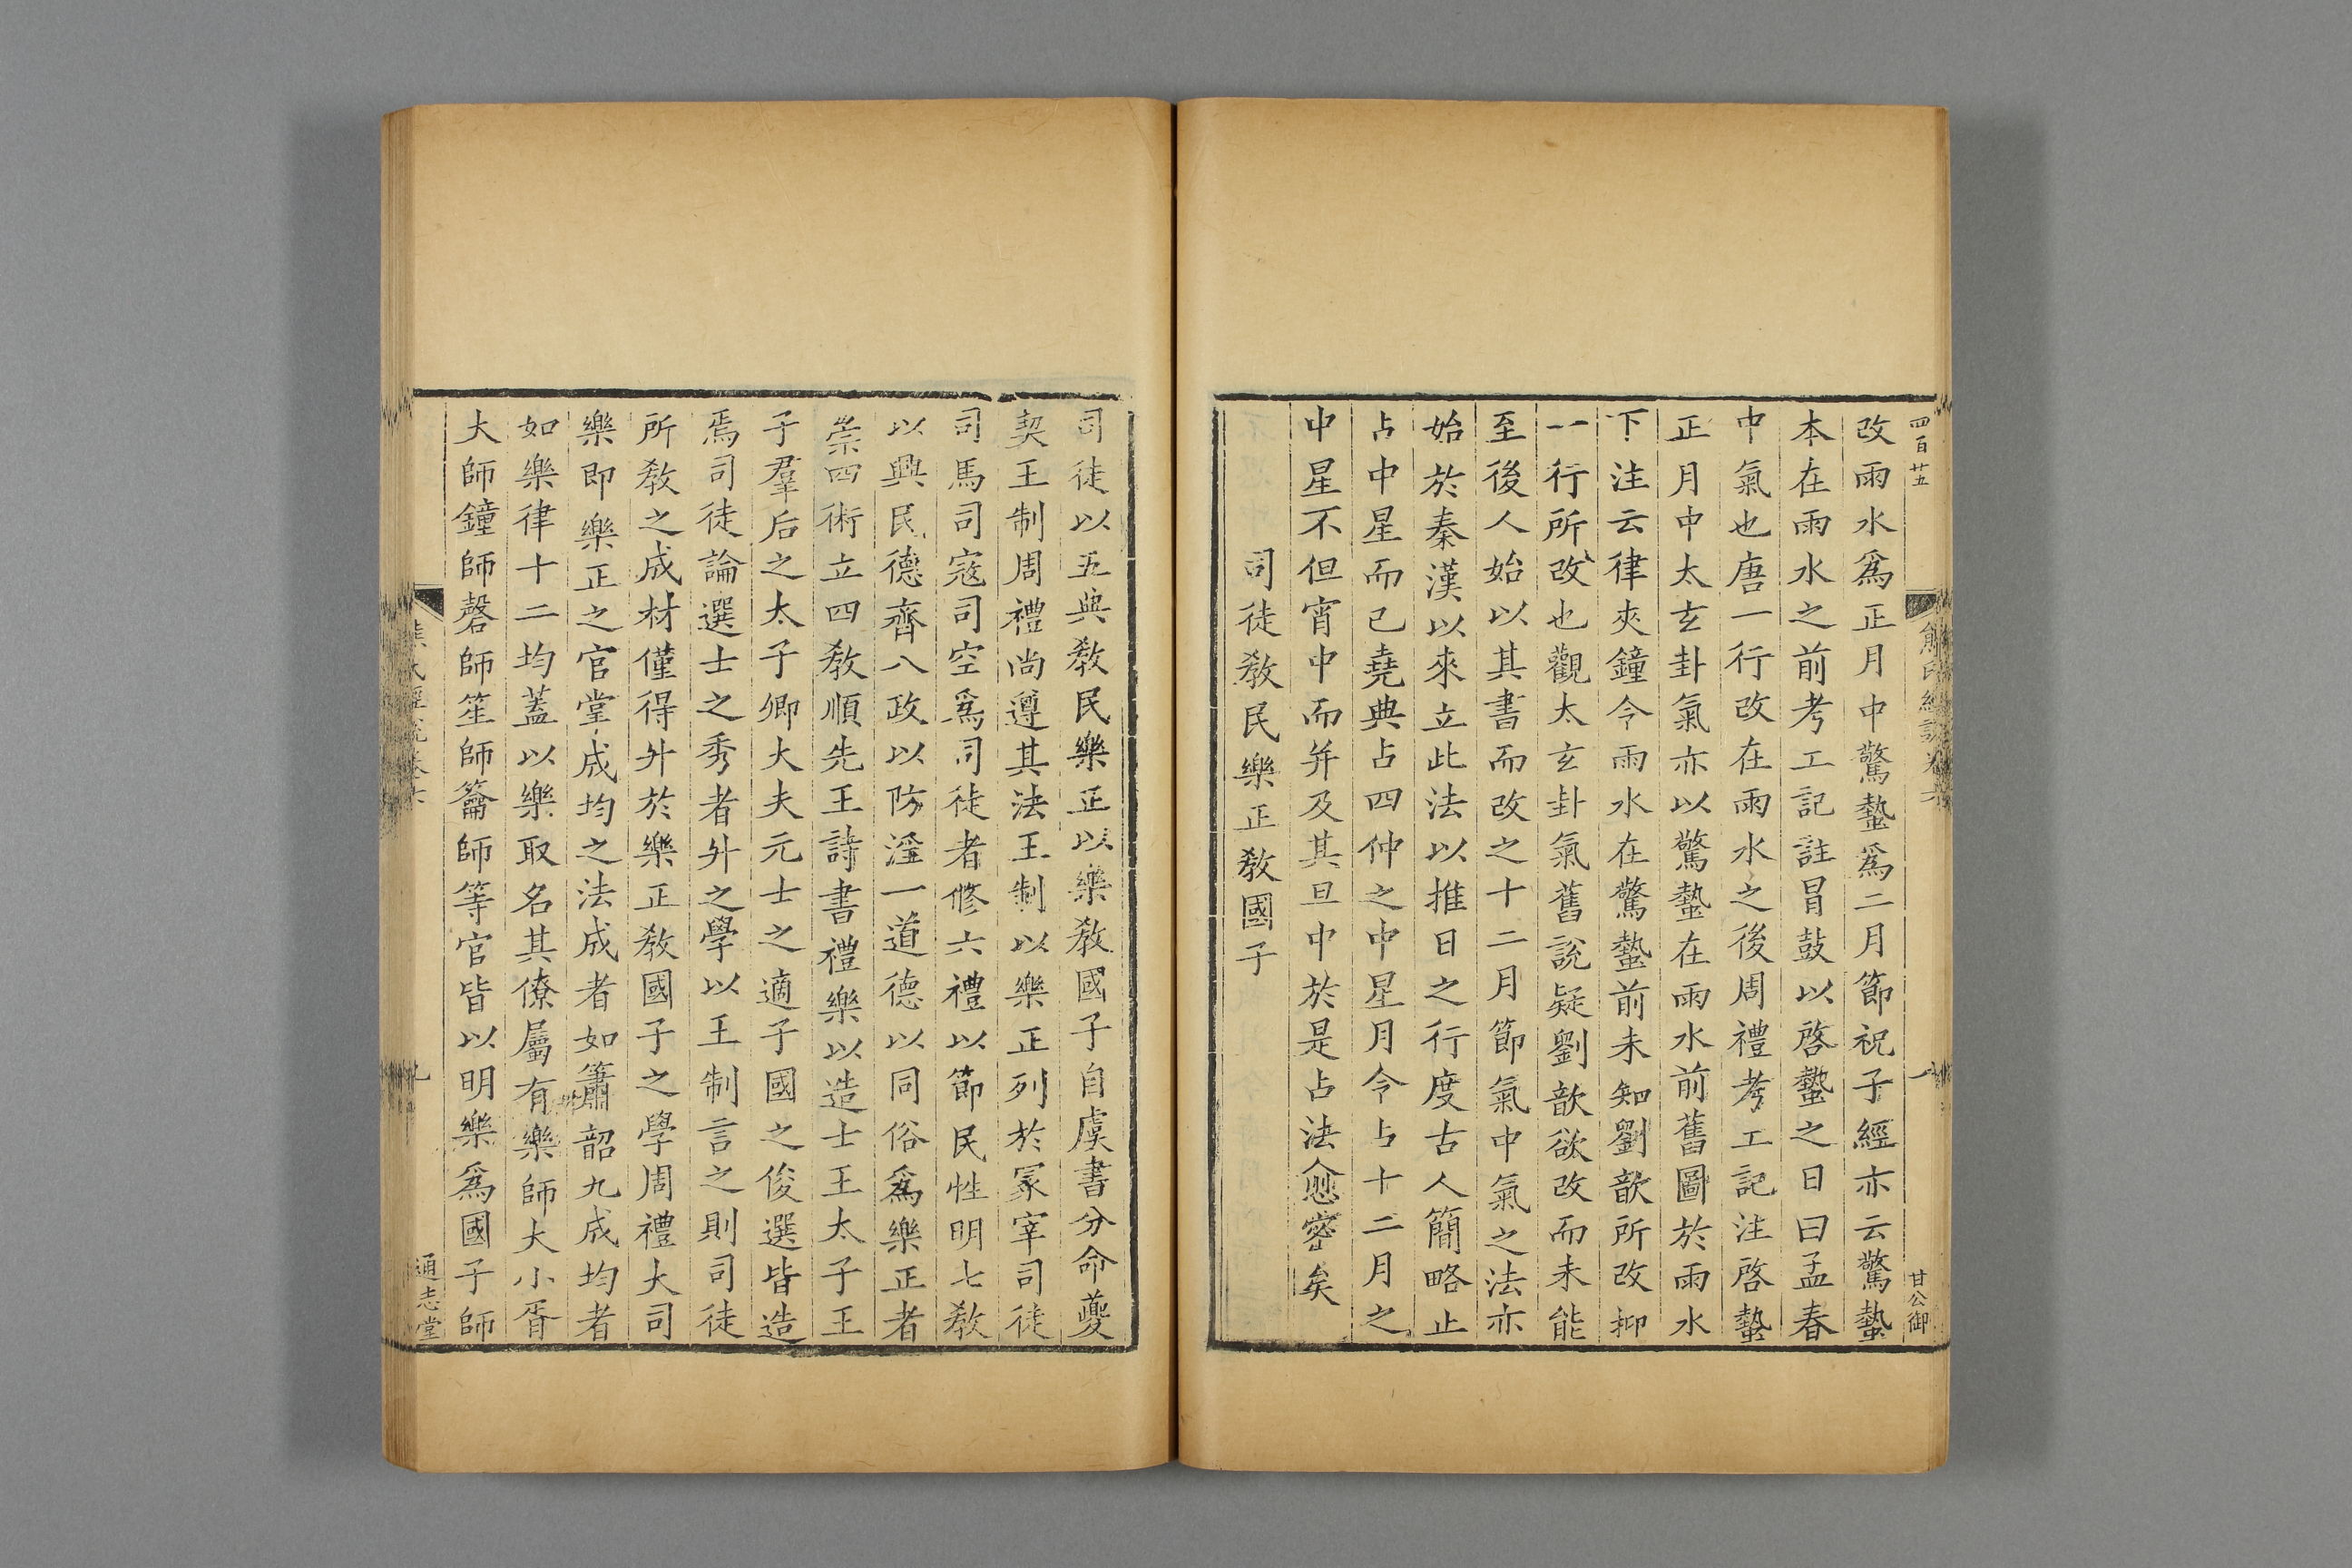 四百廿五
改雨水爲正月中驚蟄爲二月節祝子經亦云驚蟄
本在雨水之前考工記註冒鼓以啓蟄之日曰孟春
中氣也唐一行改在雨水之後周禮考工記注啓蟄
正月中太玄卦氣亦以驚蟄在雨水前舊圖於雨水
下注云律夾鐘令雨水在驚蟄前未知劉歆所改抑
一行所改也觀太玄卦氣舊說疑劉歆欲改而未能
至後人始以其書而改之十二月節氣中氣之法亦
始於秦漢以來立此法以推日之行度古人簡略止
占中星而已堯典占四仲之中星月令占十二月之
中星不但宵中而并及其旦中於是占法愈密矣
司徒敎民樂正敎國子
熊氏經說卷六
甘公御
司徒以五典敎民樂正以樂敎國子自虞書分命夔
契王制周禮尚遵其法王制以樂正列於冢宰司徒
司馬司寇司空爲司徒者修六禮以節民性明七敎
以興民德齊八政以防淫一道德以同俗爲樂正者
崇四術立四敎順先王詩書禮樂以造士王太子王
子羣后之太子卿大夫元士之適子國之俊選皆造
焉司徒論選士之秀者升之學以王制言之則司徒
所敎之成材僅得升於樂正敎國子之學周禮大司
樂即樂正之官掌成均之法成者如簫韶九成均者
如樂律十二均蓋以樂取名其僚屬有樂師大小胥
大師鐘師磬師笙師籥師等官皆以明樂爲國子師
熊氏經說卷六
九
通志堂